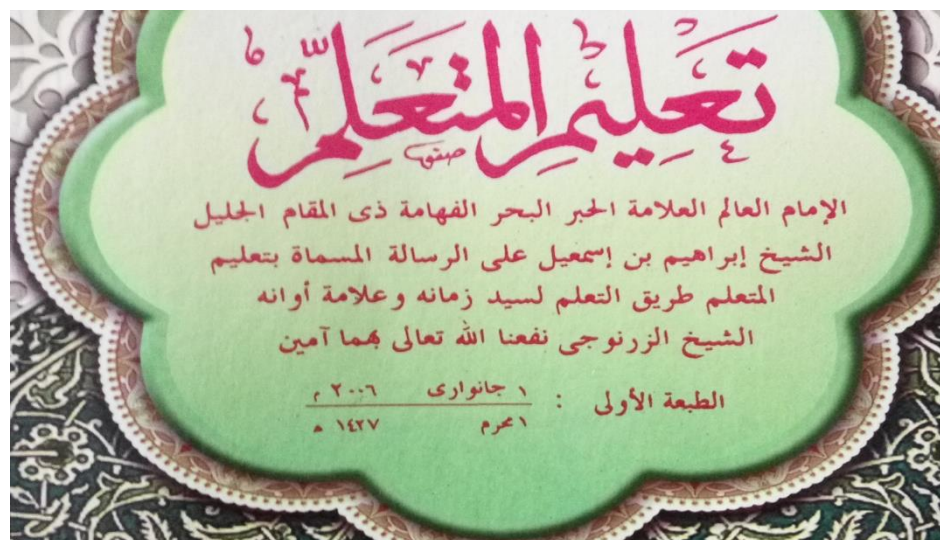 تعليم المتعلم
الإمام العالم العلامة الحبر البحر الفهامة ذى المقام الجليل
الشيخ إبراهيم بن إسمعيل على الرسالة المسماة بتعليم
المتعلم طريق التعلم لسيد زمانه وعلامة أوانه
الشيخ الزرنوجى نفعنا الله تعالى بهما آمين
الطبعة الأولى : ١ جانوارى ٢٠٠٦ م
١ محرم ١٤٢٧ ه